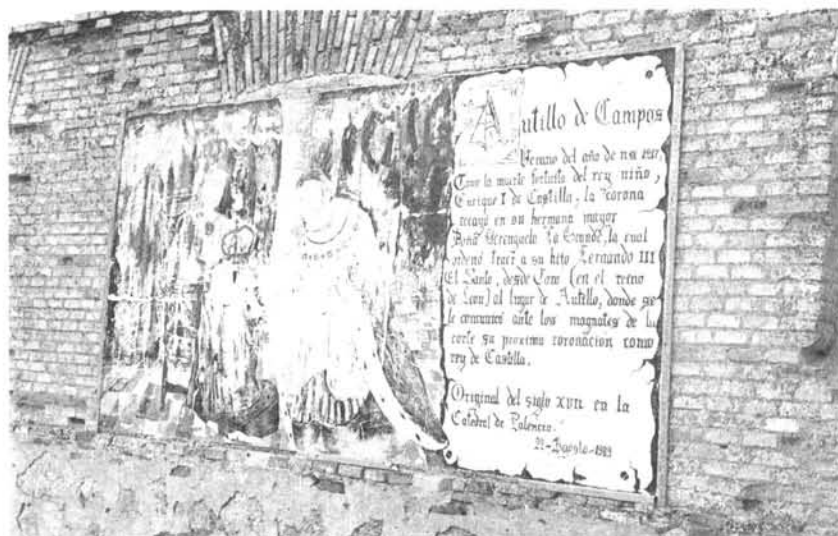 Autillo de Campos
Verano del año de
Tras la muerte fortuita del rey niño,
Enrique I de Castilla, la corona
recayó en su hermana mayor
Doña Berenguela La Grande, la cual
ordenó traer a su hijo Fernando III
El Santo, desde Toro (en el reino
de León) al lugar de Autillo, donde se
le comunicó ante los magnates de la
corte su próxima coronación como
rey de Castilla.
Original del siglo XVII en la
Catedral de Palencia.
22-Agosto-1989